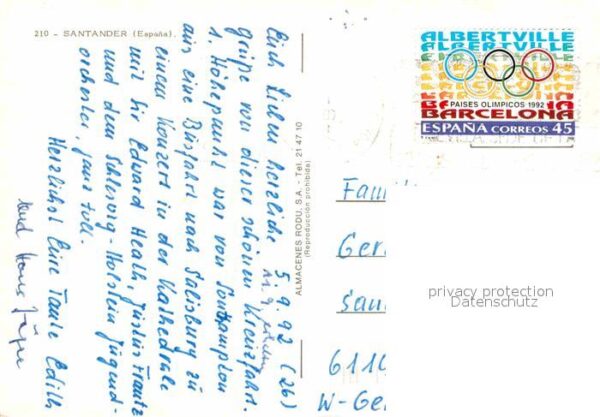 210 - SANTANDER (España).
5.9.92 (26)
Euch Lieben herzliche
Grüße von dieser schönen Kreuzfahrt.
1. Höhepunkt war von Southampton
aus eine Busfahrt nach Salisburg zu
einem Konzert in der Kathedrale
mit Sir Edward Heath, Justus Frantz
und dem Schleswig-Holstein Jugend-
orchester, ganz toll.
Herzlichst Eure Tante Edith
und Hans
ALMACENES RODU, S.A. - Tel. 21 47 10
(Reproducción prohibida)
ALBERTVILLE
ALBERTVILLE
PAISES OLIMPICOS 1992
BARCELONA
ESPAÑA CORREOS 45
Fam
Ger
San
6110
W-Ge
privacy protection
Datenschutz